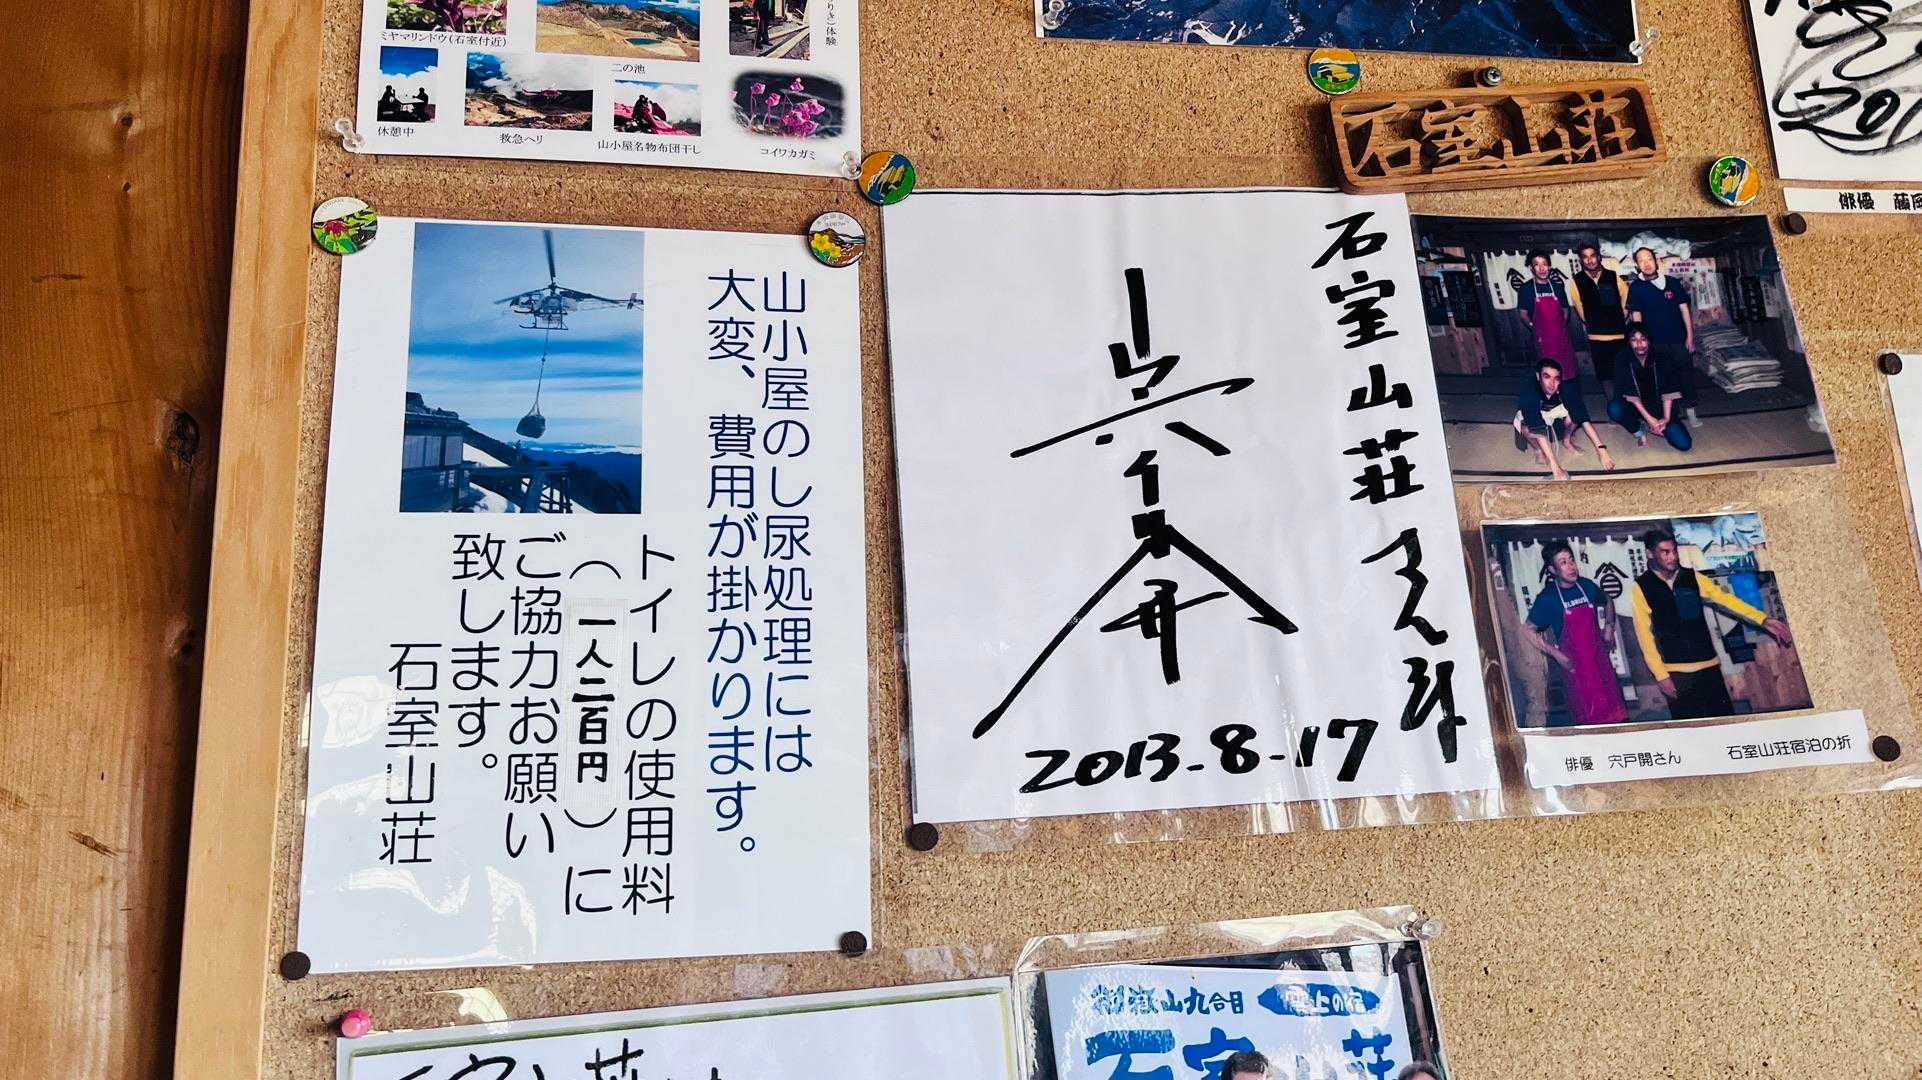 ミヤマリンドウ(石室付近)
二の池
休憩中
救急ヘリ
山小屋名物布団干し
コイワカガミ
石室山荘
俳優
山小屋のし尿処理には
大変、費用が掛かります。
トイレの使用料
(一人二百円)に
ご協力お願い
致します。
石室山荘
石室山荘さん江
2013-8-17
俳優 宍戸開さん 石室山荘宿泊の折
御嶽山九合目
雲上の宿
石室山荘